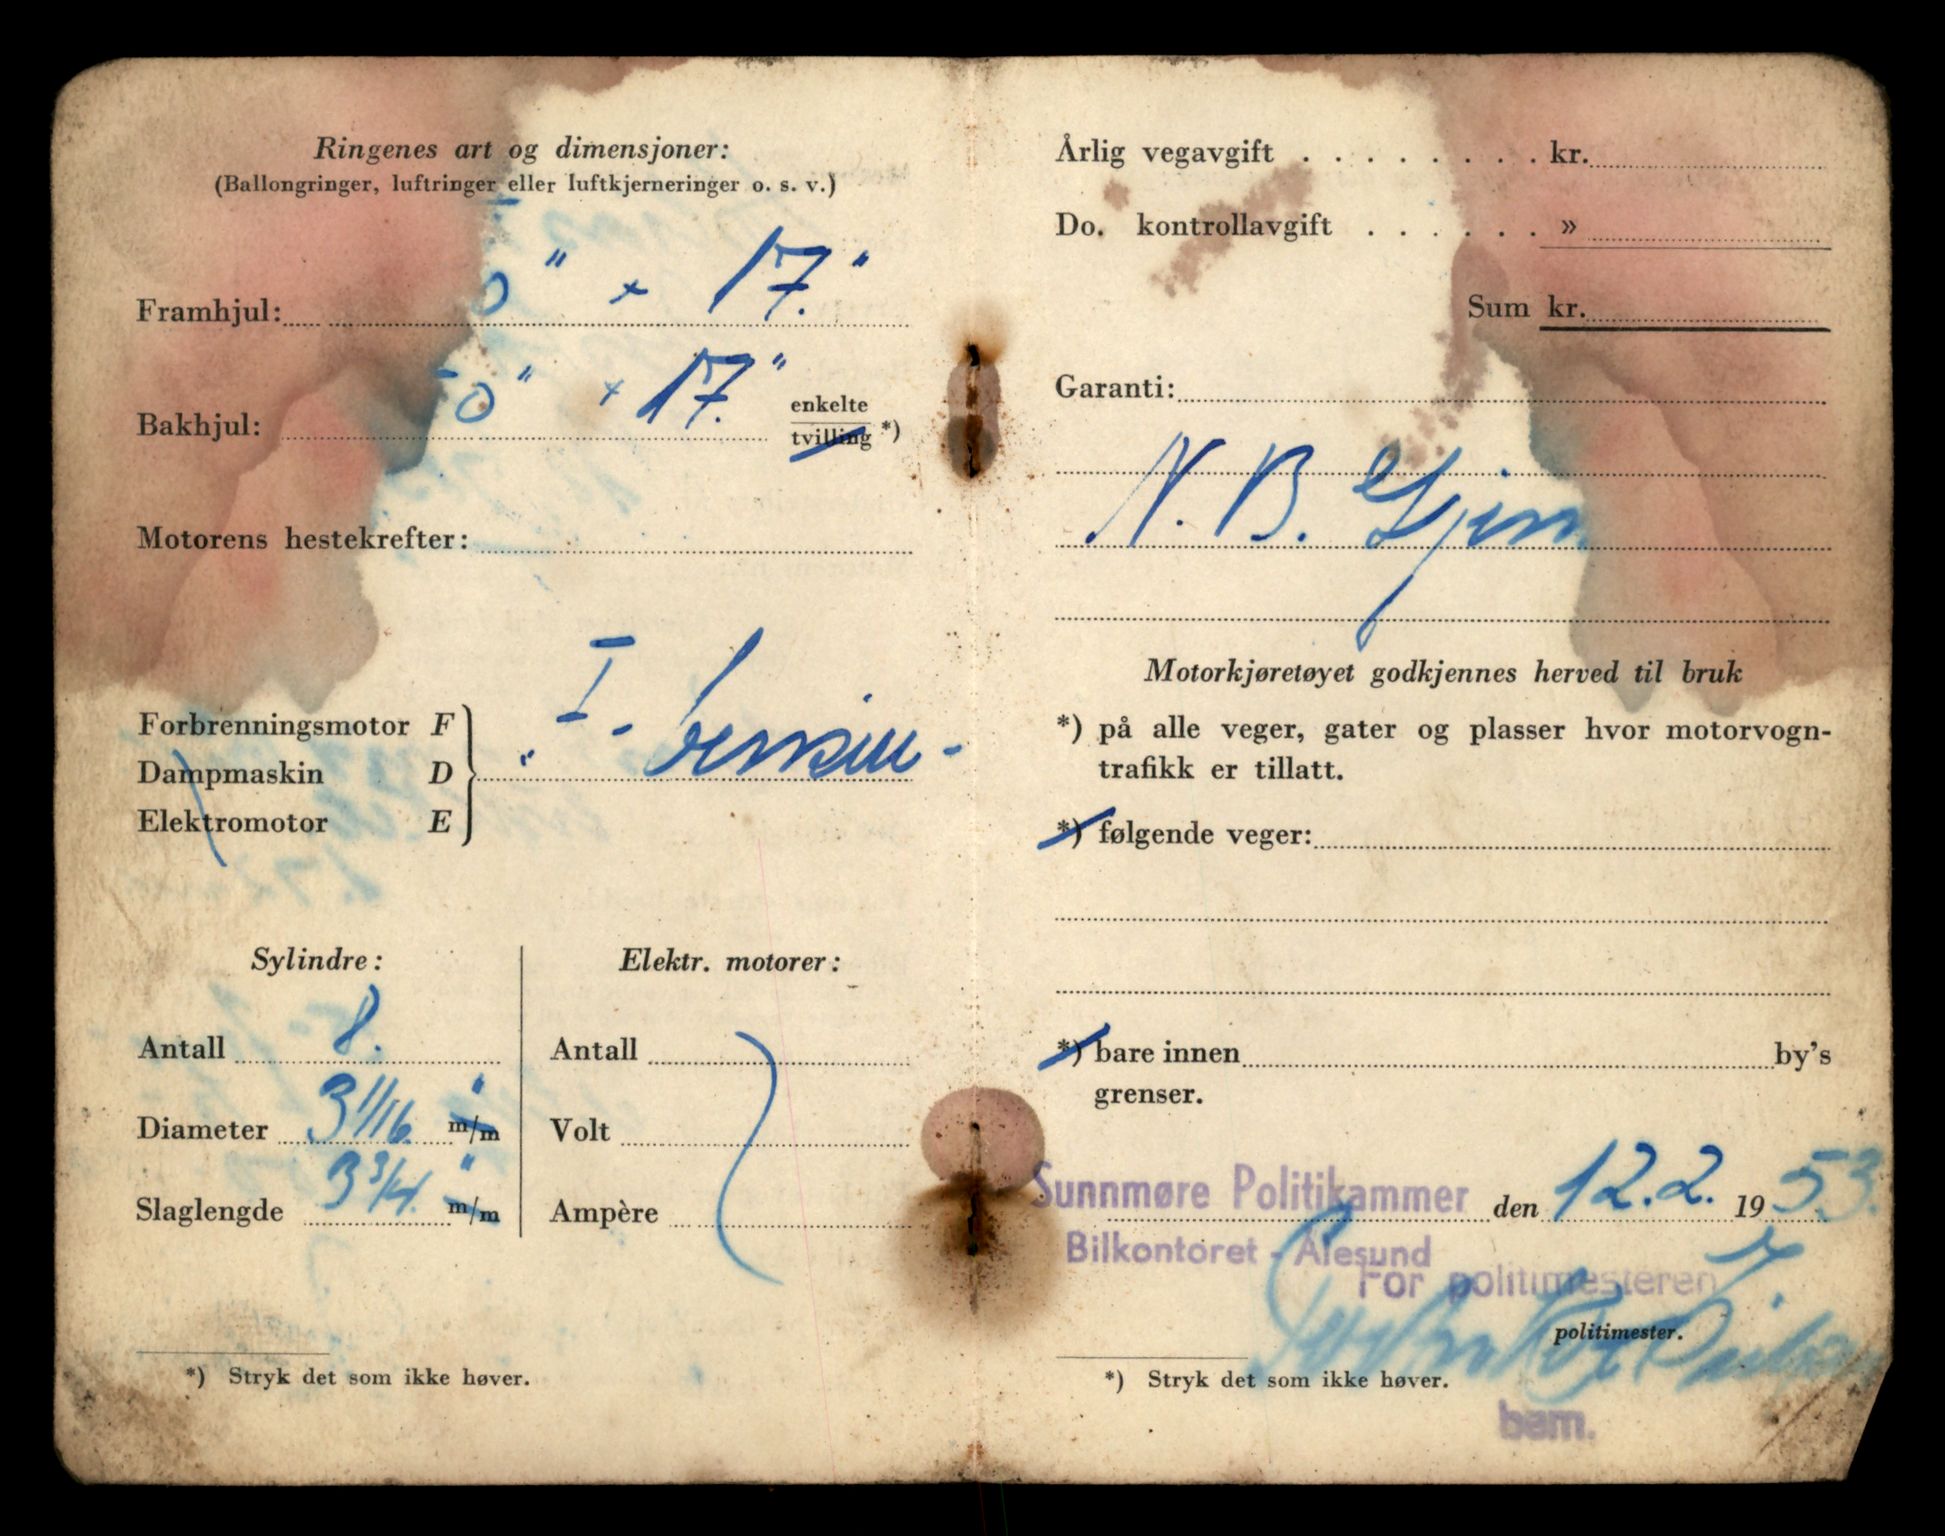 Ringenes art og dimensjoner:
(Ballongringer, luftringer eller luftkjerneringer o. s. v.)
Framhjul: 0" × 17."
Bakhjul: 50" × 17." enkelte
tvilling *)
Motorens hestekrefter:
I
Forbrenningsmotor F - bensin -
Dampmaskin D
Elektromotor E
Sylindre:
Antall 8.
Diameter 3 11/16 " m/m
Slaglengde 3 3/4. " m/m
Elektr. motorer:
Antall
Volt
Ampère
*) Stryk det som ikke høver.
Årlig vegavgift . . . . . . . . . kr.
Do. kontrollavgift . . . . . . »
Sum kr.
Garanti:
N. B.
Motorkjøretøyet godkjennes herved til bruk
*) på alle veger, gater og plasser hvor motorvogn-
trafikk er tillatt.
*) følgende veger:
*) bare innen by's
grenser.
Sunnmøre Politikammer den 12.2. 1953.
Bilkontoret - Ålesund
For politimesteren
politimester.
*) Stryk det som ikke høver.
bem.